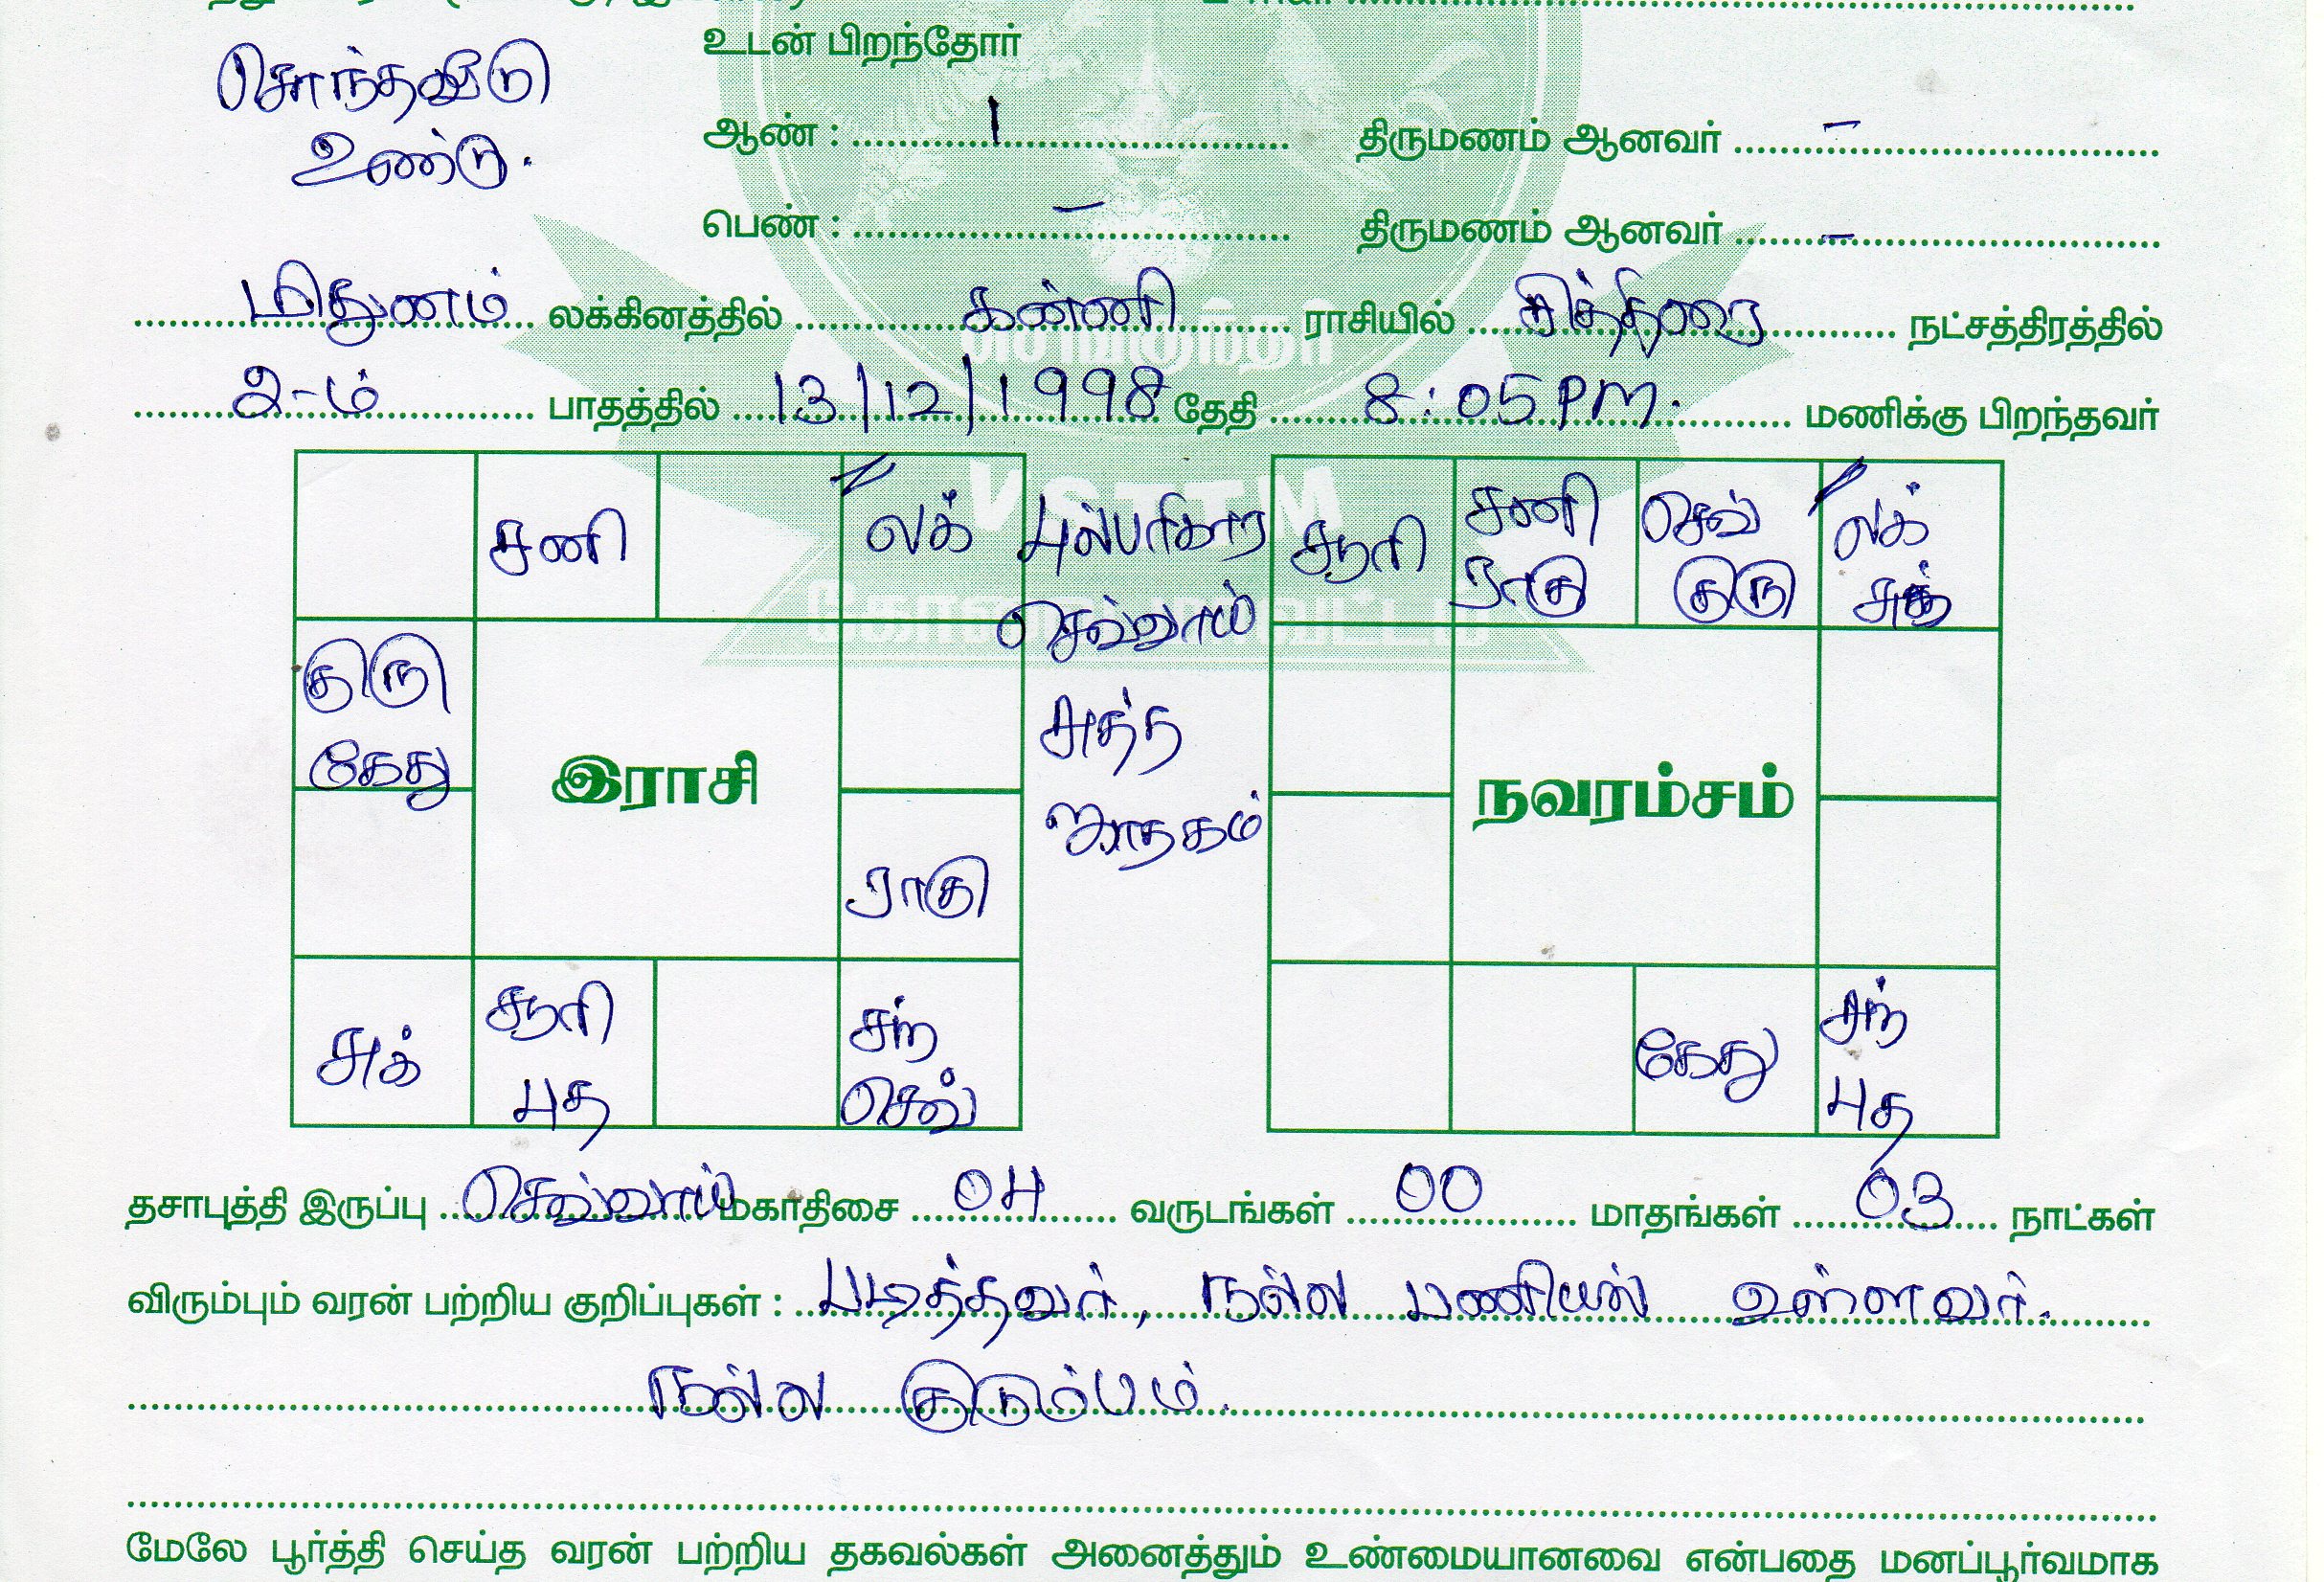 உடன் பிறந்தோர்
சொந்தவீடு
உண்டு.
ஆண் : 1 திருமணம் ஆனவர் –
பெண் : – திருமணம் ஆனவர் –
மிதுனம் லக்கினத்தில் கன்னி ராசியில் சித்திரை நட்சத்திரத்தில்
2-ம் பாதத்தில் 13/12/1998 தேதி 8:05 PM. மணிக்கு பிறந்தவர்
சனி லக்
குரு
கேது
இராசி
ராகு
சுக் சூரி
புத
சந்
செவ்
செவ்வாய்
சுத்த
ஜாதகம்
VSTTM
சூரி சனி
ராகு
செவ்
குரு
லக்
சுக்
நவரம்சம்
கேது சந்
புத
தசாபுத்தி இருப்பு செவ்வாய் மகாதிசை 04 வருடங்கள் 00 மாதங்கள் 03 நாட்கள்
விரும்பும் வரன் பற்றிய குறிப்புகள் : படித்தவர், நல்ல பணியில் உள்ளவர்.
நல்ல குடும்பம்.
மேலே பூர்த்தி செய்த வரன் பற்றிய தகவல்கள் அனைத்தும் உண்மையானவை என்பதை மனப்பூர்வமாக